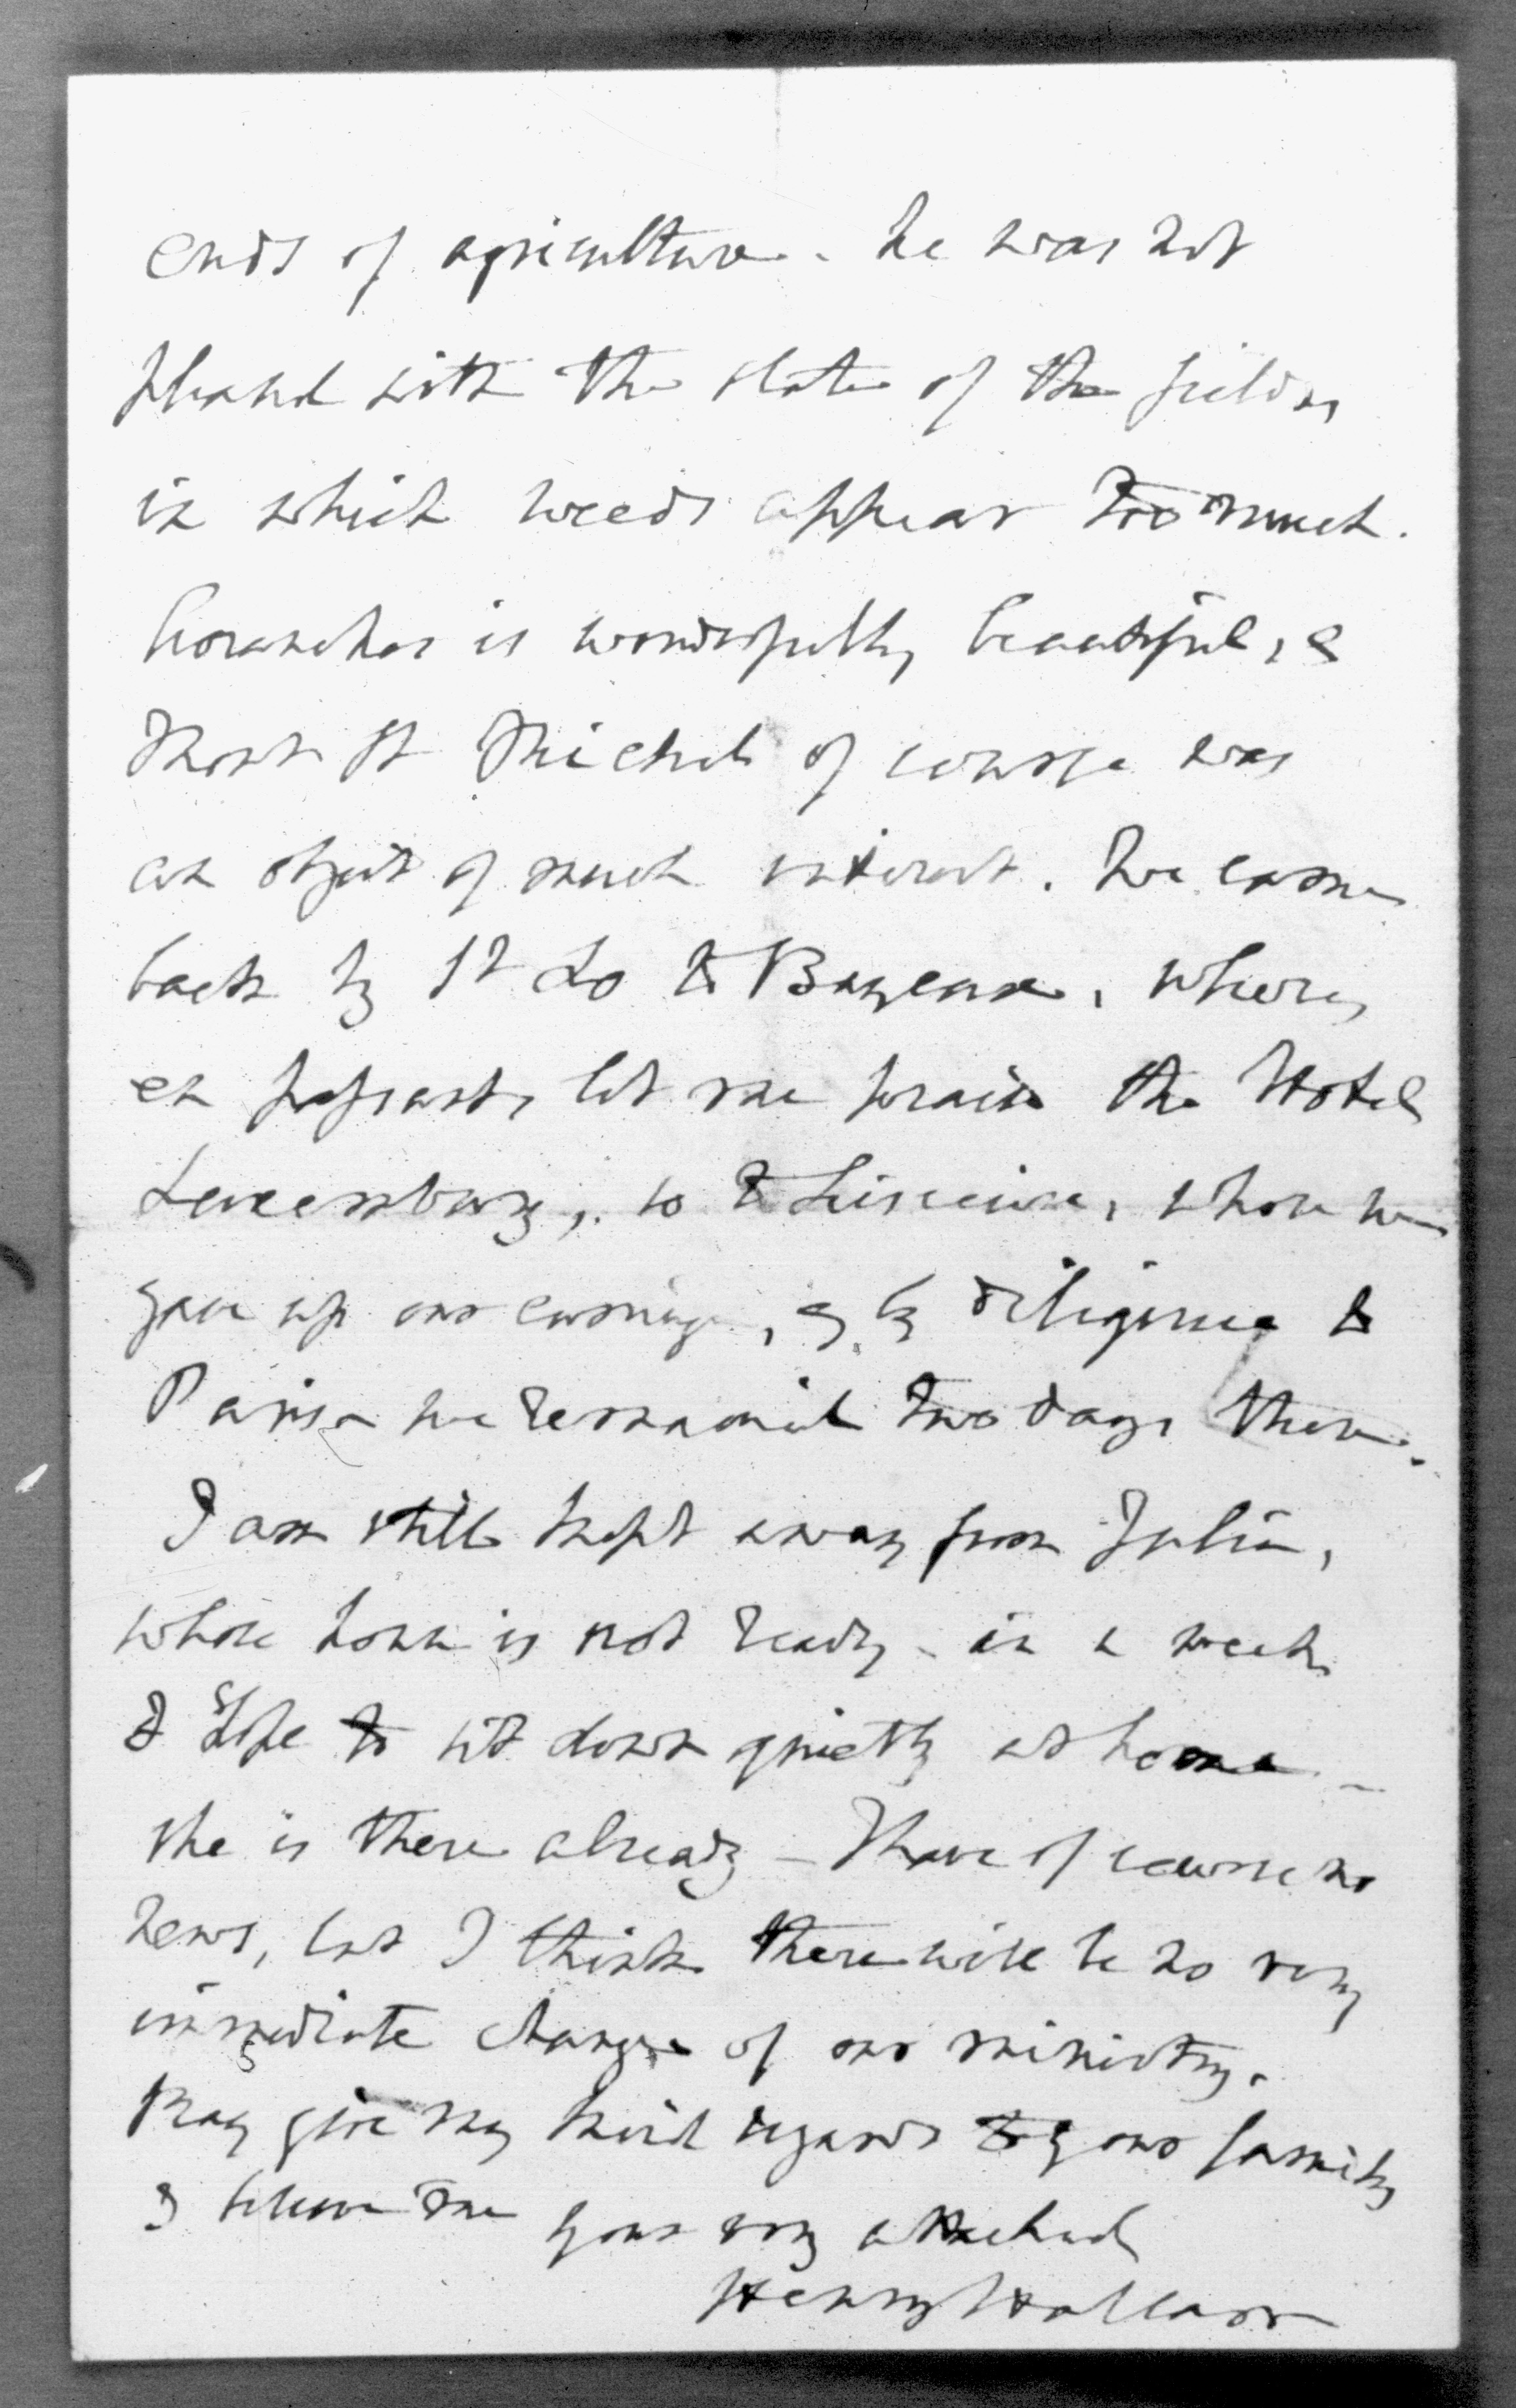 ends of agriculture. he was not
pleased with the state of the fields,
in which weeds appear too much.
Avranches is wonderfully beautiful, &
Mont St Michel of course was
an object of much interest. We came
back by St Lo to Bayeux, where,
en passant, let me praise the Hotel
Luxembourg, so to Lisieux, where we
gave up our carriage, & by diligence to
Paris - we remained two days there.
I am still kept away from Julia,
whose house is not ready - in a week
I hope to sit down quietly at home -
she is there already - I have of course no
news, but I think there will be no very
immediate change of our ministry.
Pray give my kind regards to your family
& believe me yours very attached
Henry Hallam